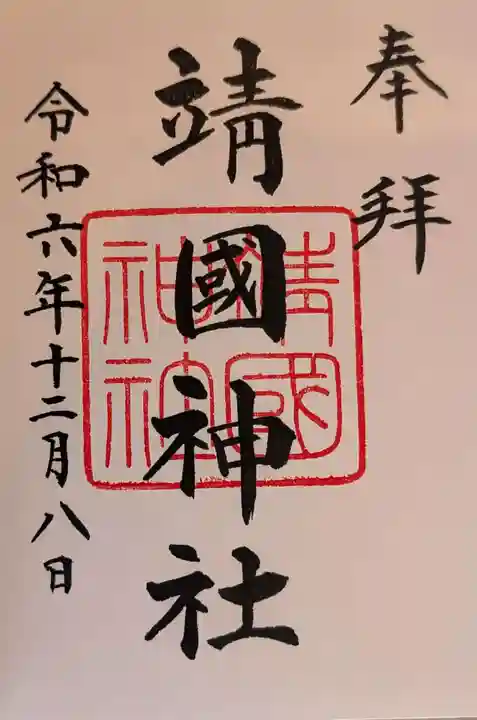 奉拝
靖國神社
靖國
神社
令和六年十二月八日